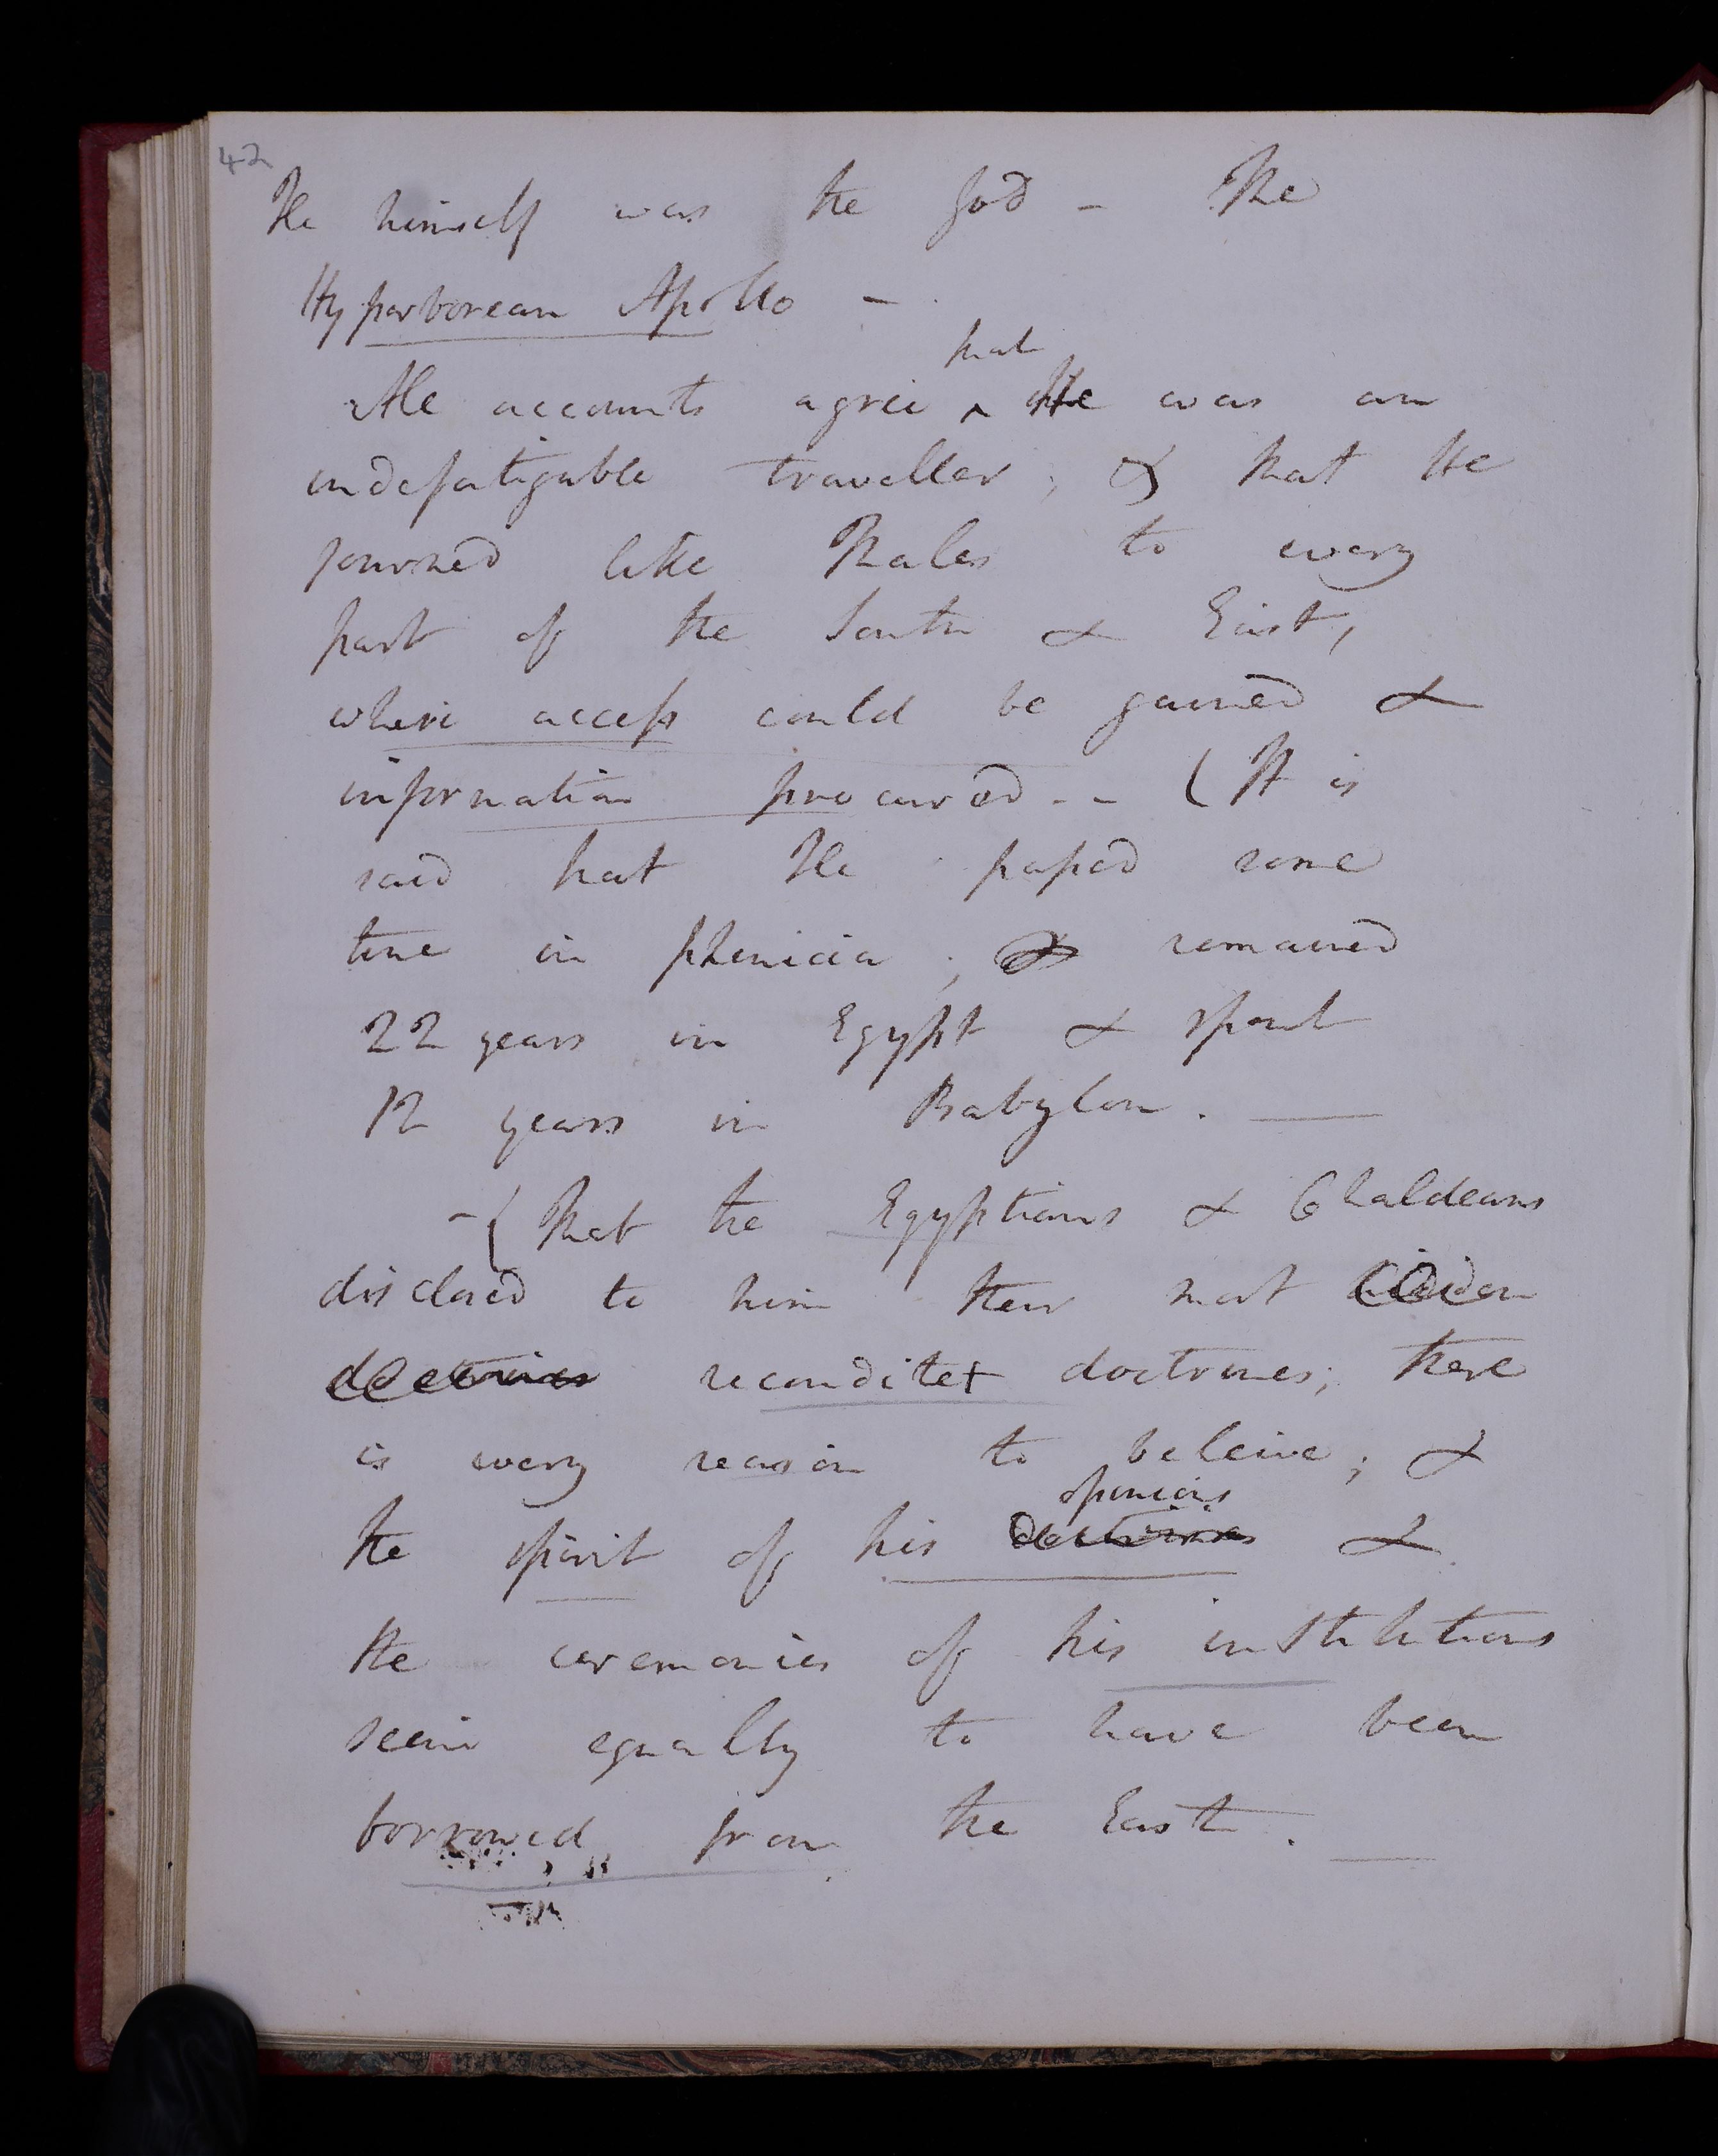 42
He himself was the God - The
Hyparborean Apollo -
All accounts agree ^ that He was an
indefatigable traveller; & that He
journed like Thales to every
part of the South & East,
where access could be gained &
information procured. - ( It is
said that He passed some
time in phenicia; & remained
22 years in Egypt & spent
12 years in Babylon. —
- ( That the Egyptians & Chaldeans
disclosed to him their most hidden
doctrines recondite+ doctrines; there
is every reason to beleive; &
opinions
the spirit of his doctrines &
the ceremonies of his institutions
seem equally to have been
borrowed from the East. —